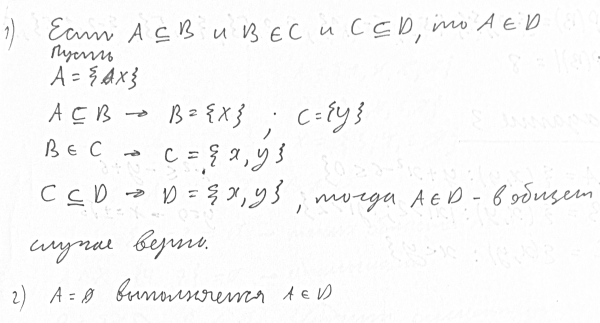 1) Если A ⊆ B и B ∈ C и C ⊆ D, то A ∈ D
Пусть
A = {x}
A ⊆ B → B = {x} ; C = {y}
B ∈ C → C = {x, y}
C ⊆ D → D = {x, y}, тогда A ∈ D - в общем
случае верно.
2) A = ∅ выполняется A ∈ D